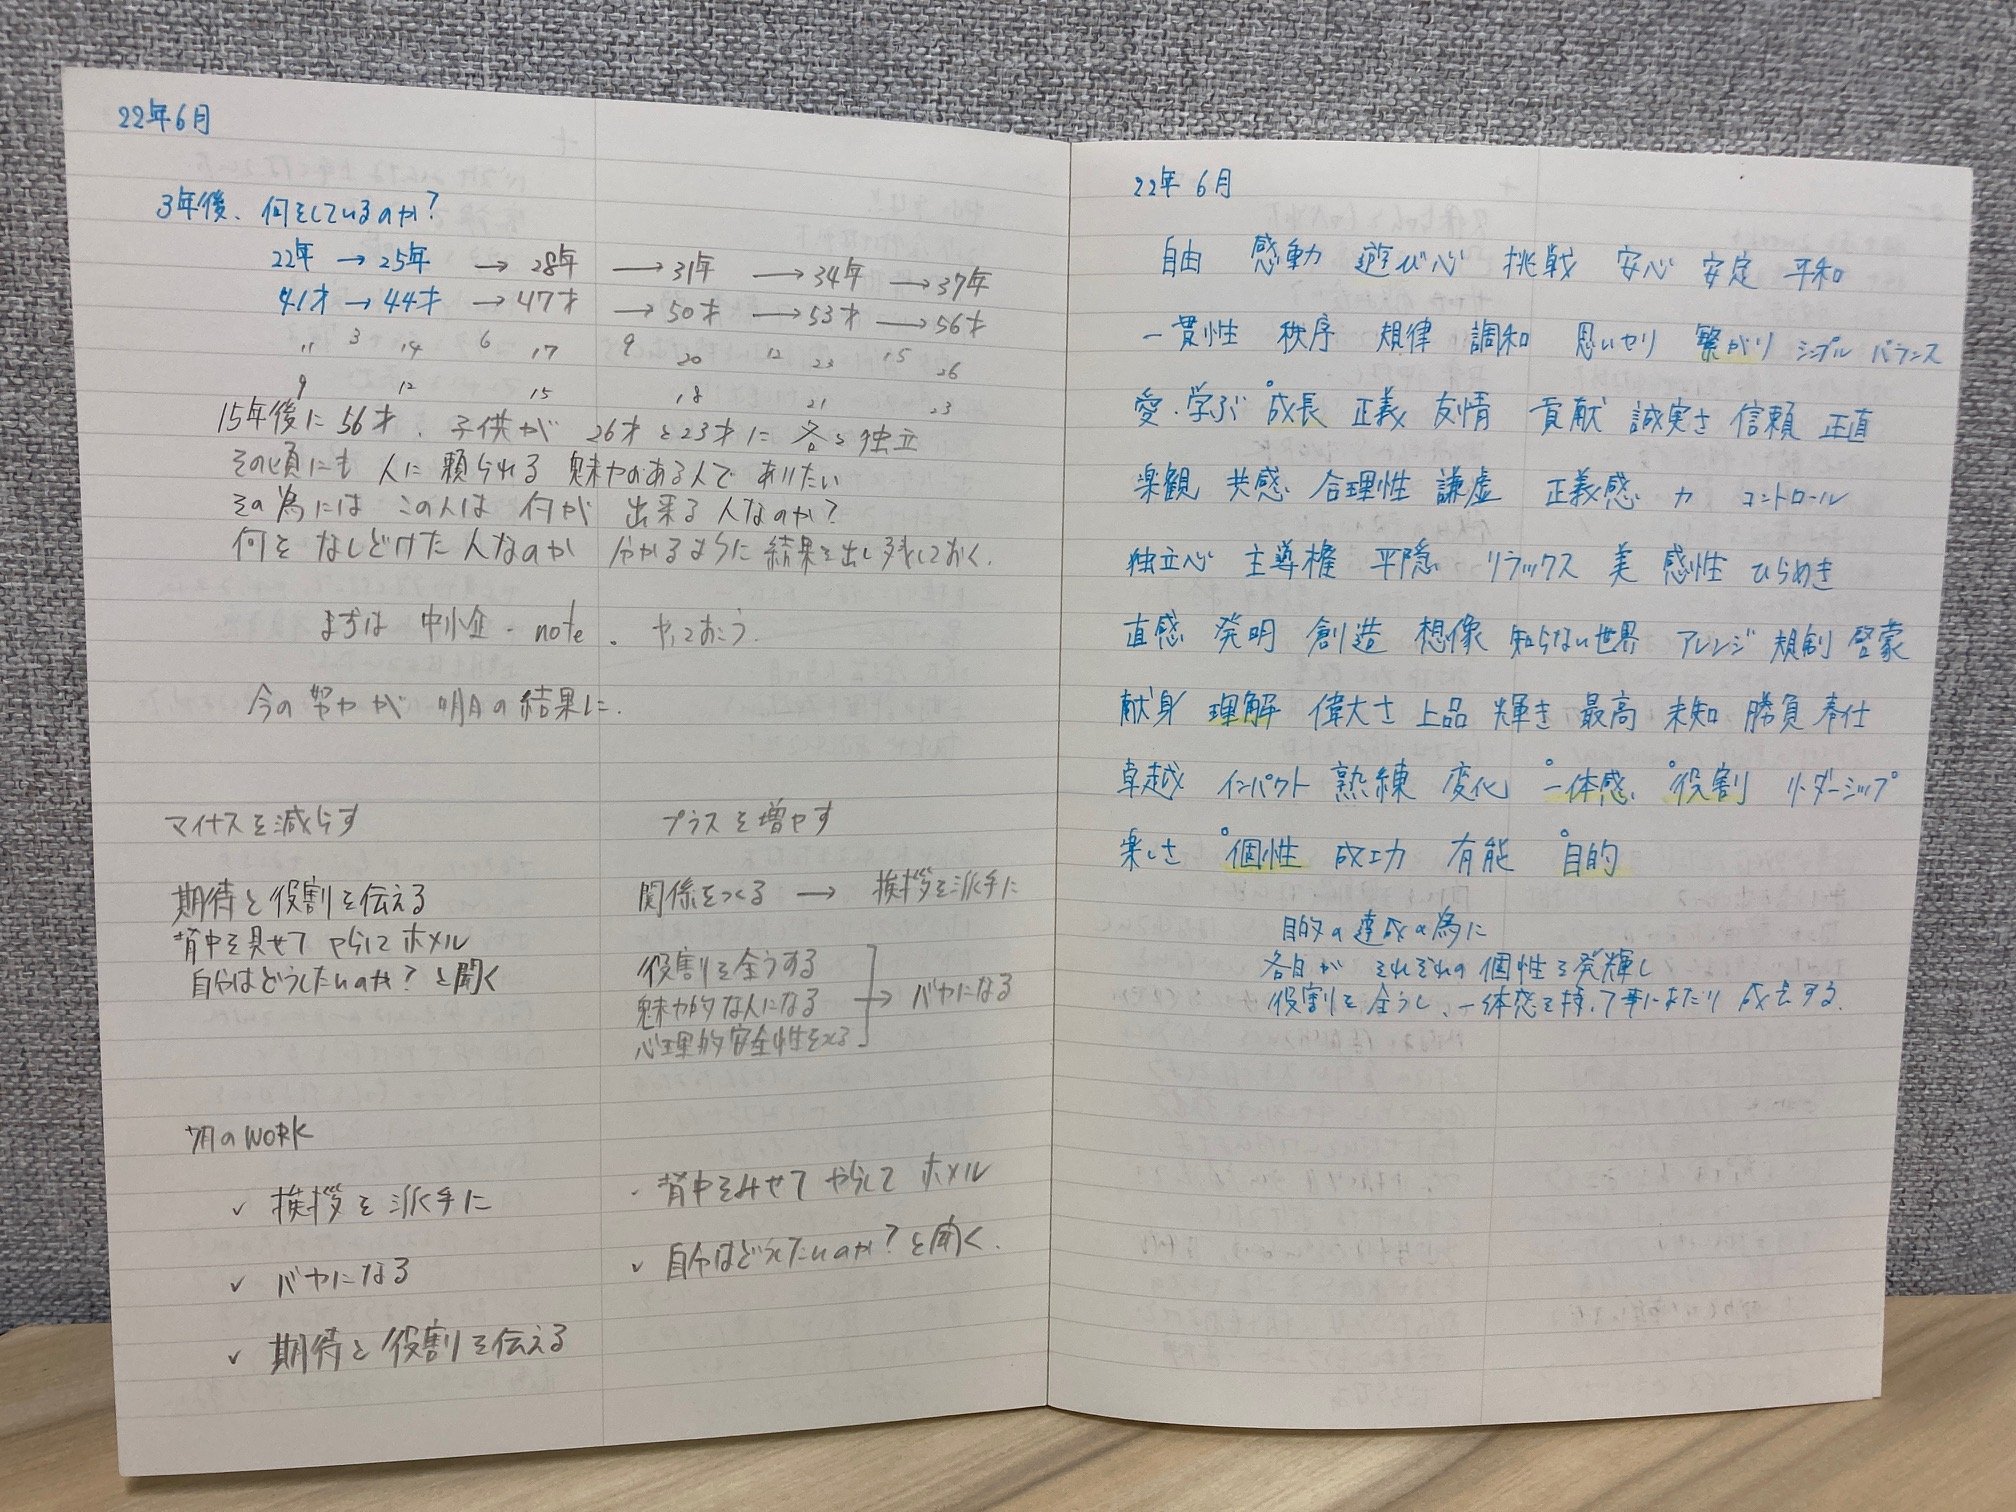 22年6月
3年後、何をしているのか?
22年 → 25年 → 28年 → 31年 → 34年 → 37年
41才 → 44才 → 47才 → 50才 → 53才 → 56才
11 3 14 6 17 9 20 12 23 15 26
9 12 15 18 21 23
15年後に56才、子供が 26才と23才に 各々独立
その頃にも 人に頼られる 魅力のある人で ありたい
その為には この人は 何が 出来る人なのか?
何を なしとげた人なのか 分かるように 結果を出し残しておく.
まずは 中小企・note. やっておこう.
今の努力が 明日の結果に.
マイナスを減らす
期待と役割を伝える
背中を見せて やらして ホメル
自分はどうしたいのか?と聞く
プラスを増やす
関係をつくる → 挨拶を派手に
役割を全うする
魅力的な人になる → バカになる
心理的安全性を
7月のWORK
✓ 挨拶を派手に
✓ バカになる
✓ 期待と役割を伝える
✓ 背中をみせて やらして ホメル
✓ 自分はどうしたいのか?と聞く.
22年6月
自由 感動 遊び心 挑戦 安心 安定 平和
一貫性 秩序 規律 調和 思いやり 繋がり シンプル バランス
愛・学ぶ 成長 正義 友情 貢献 誠実さ 信頼 正直
楽観 共感 合理性 謙虚 正義感 力 コントロール
独立心 主導権 平穏 リラックス 美 感性 ひらめき
直感 発明 創造 想像 知らない世界 アレンジ 規制 啓蒙
献身 理解 偉大さ 上品 輝き 最高 未知 勝負 奉仕
卓越 インパクト 熟練 変化 一体感 役割 リーダーシップ
楽しさ 個性 成功 有能 目的
目的の達成の為に
各自が それぞれの個性を発揮し
役割を全うし、一体感を持って事にあたり 成長する.